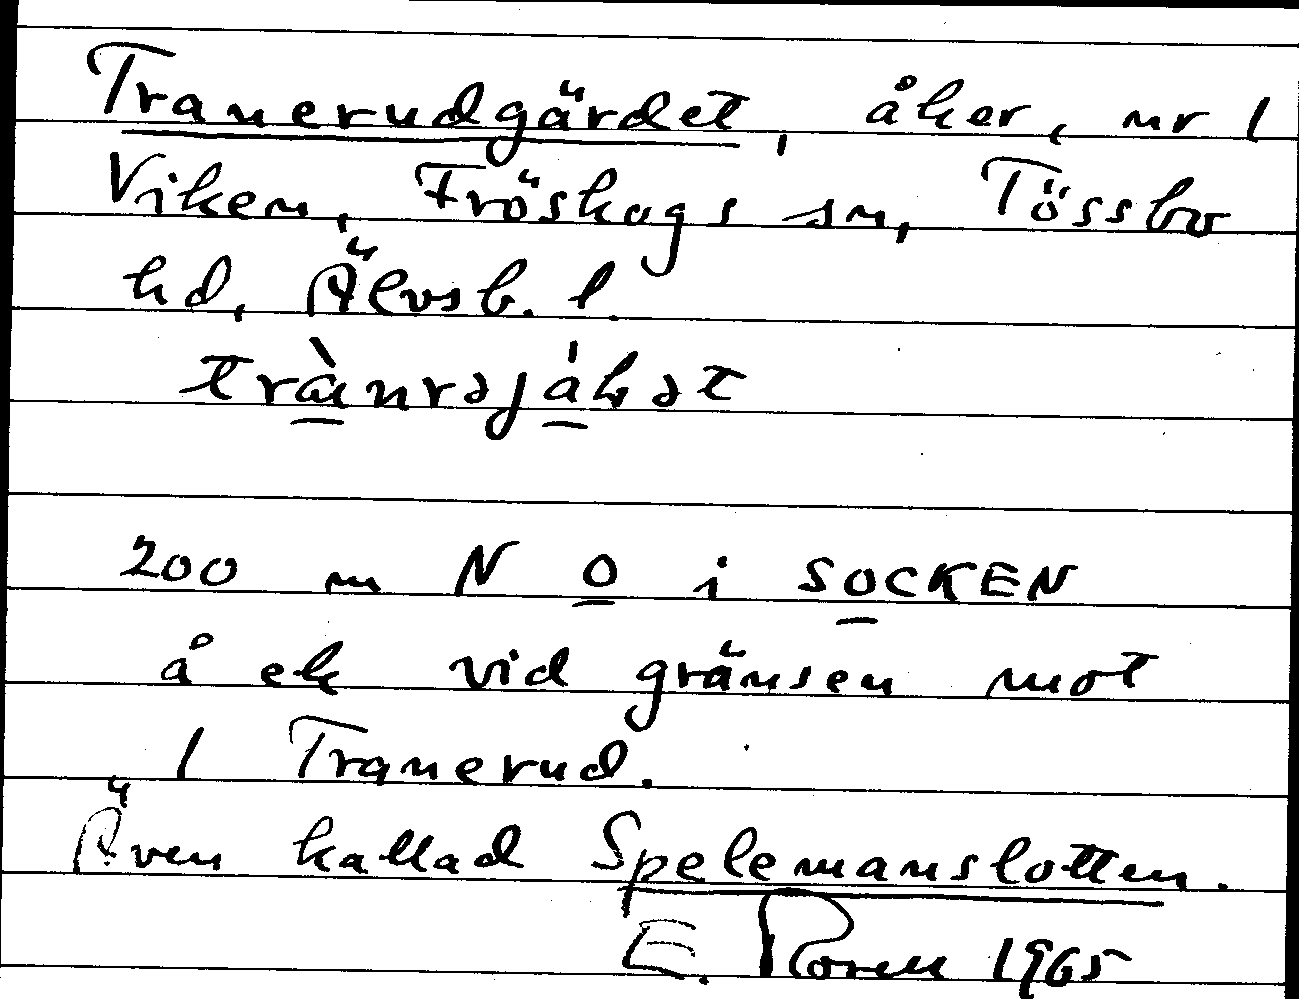 Tranerudgärdet, åker, nr 1
Viken, Fröskogs sn, Tössbo
hd, Älvsb. l.
200 m N O i SOCKEN
å ek vid gränsen mot
1 Tranerud.
Även kallad Spelemanslotten.
E. 1965